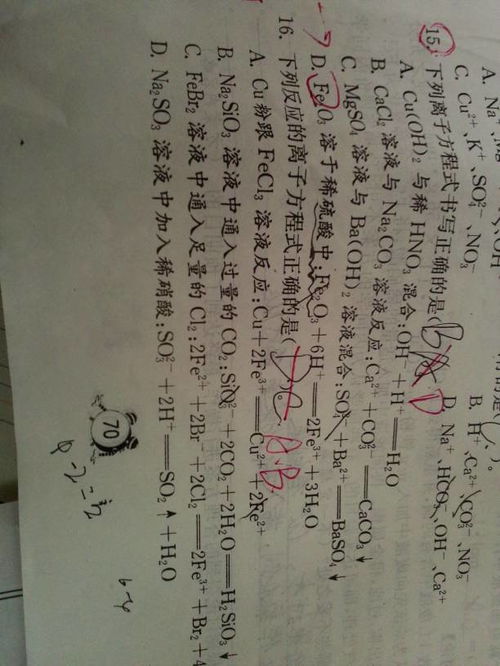 A. Na⁺、
C. Cu²⁺、K⁺、SO₄²⁻、NO₃⁻
B. H⁺、Ca²⁺、CO₃²⁻、NO₃⁻
D. Na⁺、HCO₃⁻、OH⁻、Ca²⁺
15. 下列离子方程式书写正确的是( B D )。
A. Cu(OH)₂ 与稀 HNO₃ 混合:OH⁻+H⁺══H₂O
B. CaCl₂ 溶液与 Na₂CO₃ 溶液反应:Ca²⁺+CO₃²⁻══CaCO₃↓
C. MgSO₄ 溶液与 Ba(OH)₂ 溶液混合:SO₄²⁻+Ba²⁺══BaSO₄↓
D. Fe₂O₃ 溶于稀硫酸中:Fe₂O₃+6H⁺══2Fe³⁺+3H₂O
16. 下列反应的离子方程式正确的是( A.B.
A. Cu 粉跟 FeCl₃ 溶液反应:Cu+2Fe³⁺══Cu²⁺+2Fe²⁺
B. Na₂SiO₃ 溶液中通入过量的 CO₂:SiO₃²⁻+2CO₂+2H₂O══H₂SiO₃↓
C. FeBr₂ 溶液中通入足量的 Cl₂:2Fe²⁺+2Br⁻+2Cl₂══2Fe³⁺+Br₂+4
D. Na₂SO₃ 溶液中加入稀硝酸:SO₃²⁻+2H⁺══SO₂↑+H₂O
70